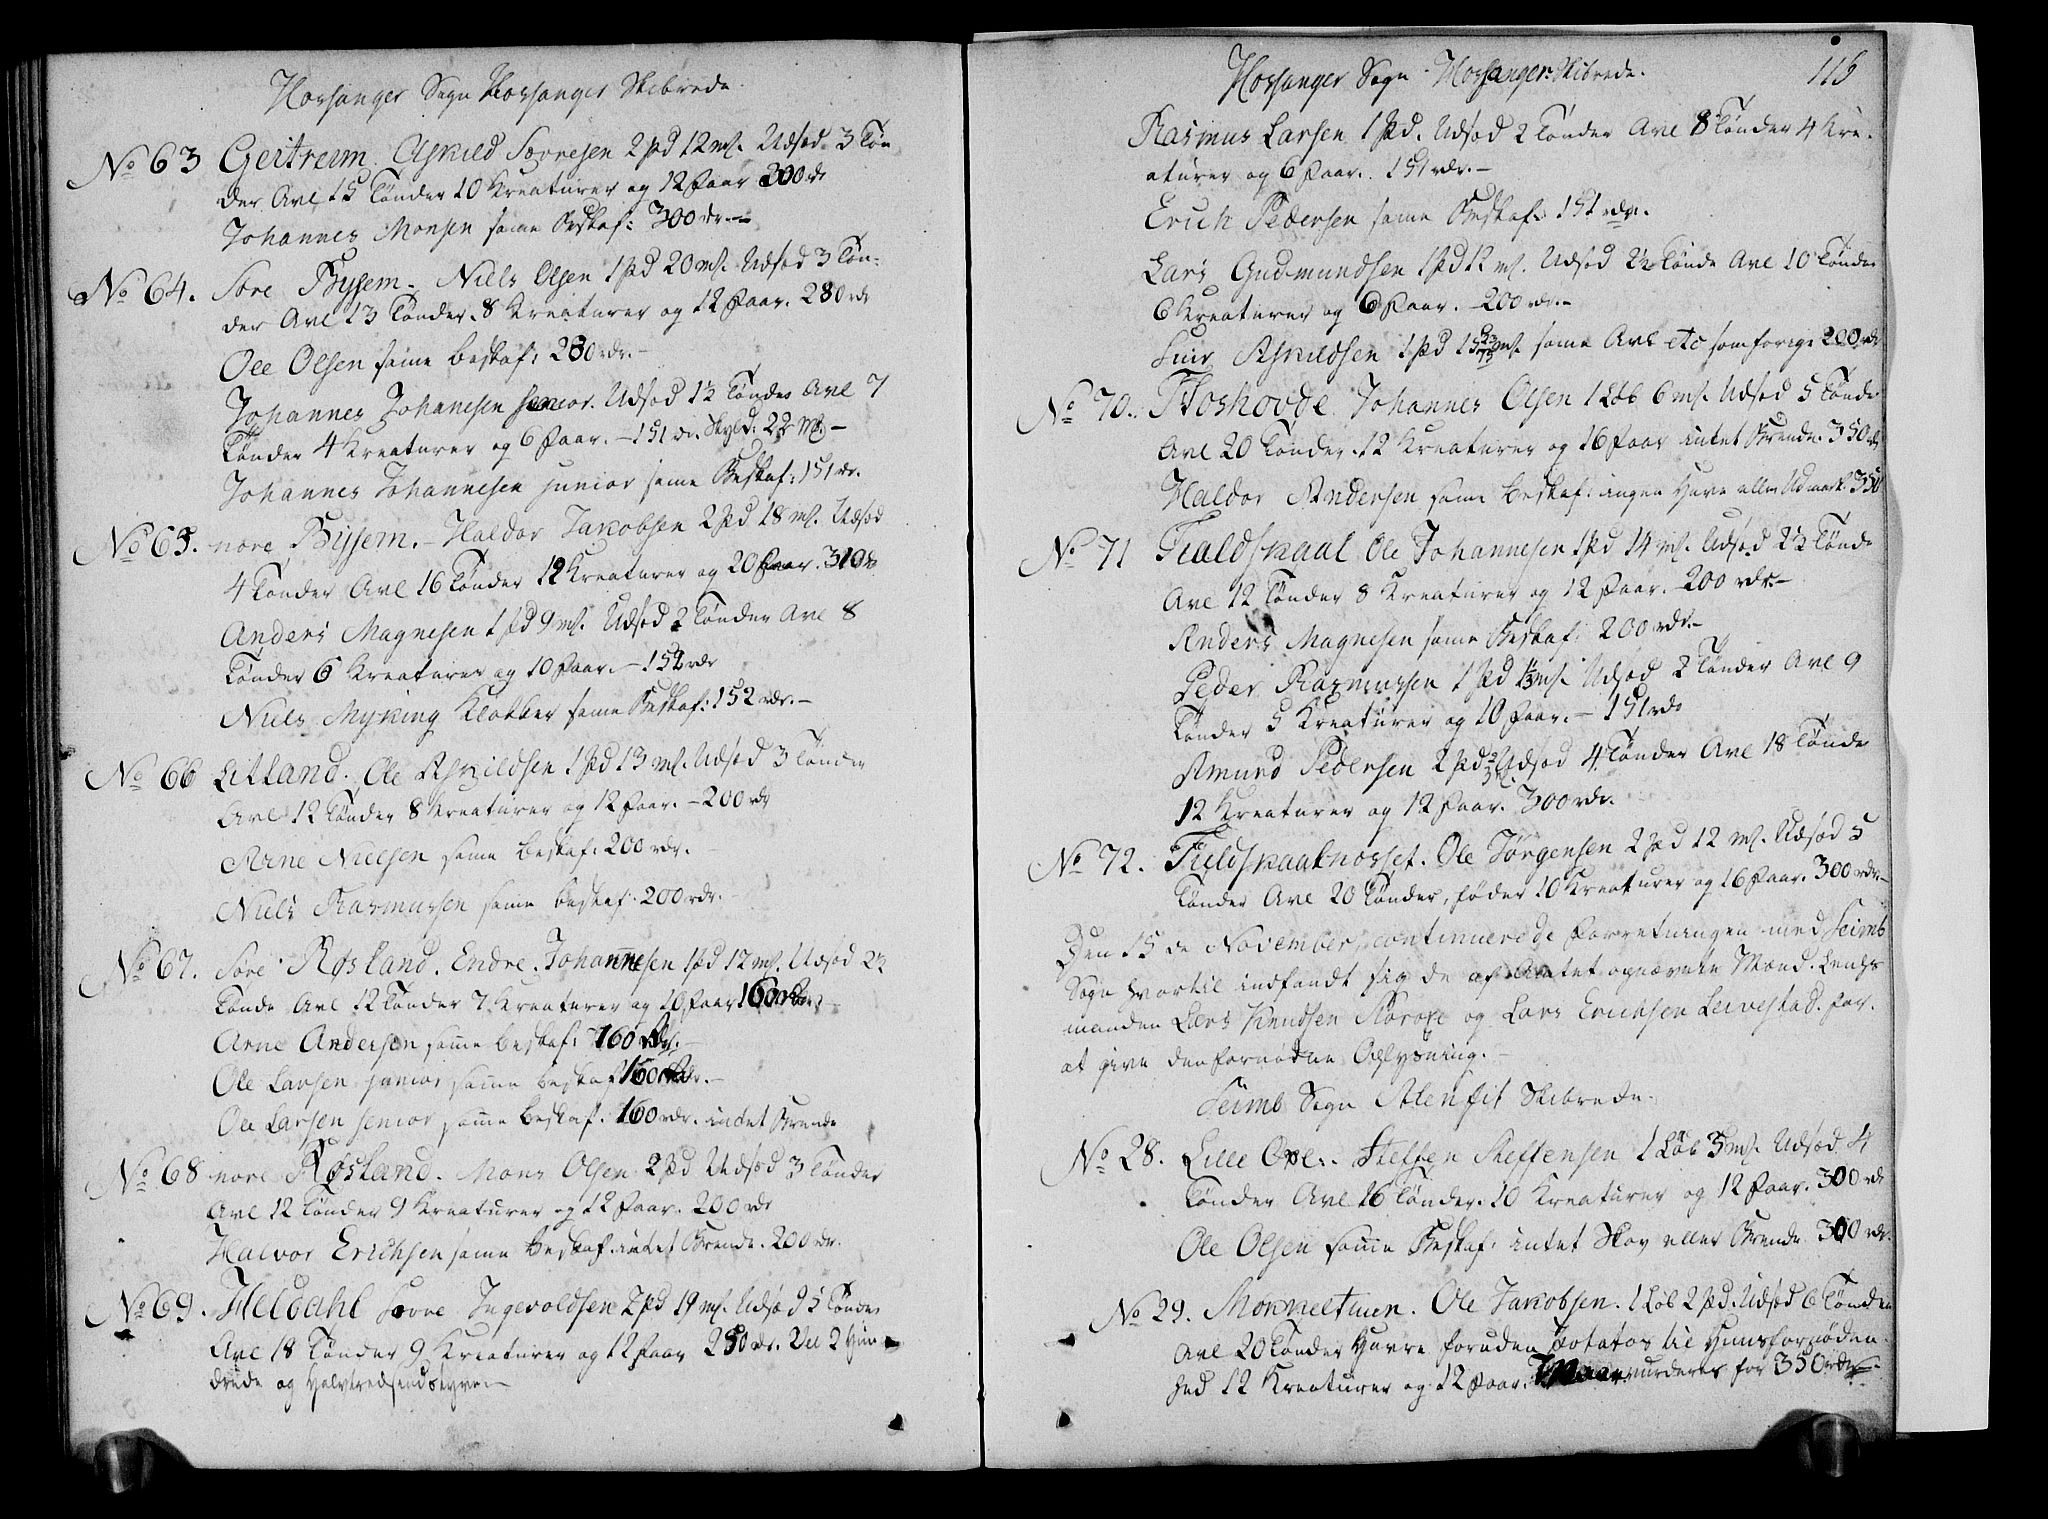 Hossanger Sogn Hossanger Skibrede.
No 63 Geitreim. Askild Sovresen 2 pd 12 mſ. Udsæd 3 Tøn
der Avl 15 Tønder 10 Kreaturer og 12 Faar 200 rdr
Johannes Monsen same Beskaf: 300 rdr.
No 64. Søre Byssem. Niels Olsen 1 pd 20 mſ. Udsæd 3 Tøn-
der Avl 13 Tønder. 8 Kreaturer og 12 Faar. 280 rdr
Ole Olsen same beskaf: 280 rdr.
Johannes Johanesen senior. Udsæd 1½ Tønder Avl 7
Tønder 4 Kreaturer og 6 Faar. 151 rdr. Skyld: 22 mſ.
Johannes Johannesen junior same Beskaf: 151 rdr.
No 65. nore Byssem. Haldor Jakobsen 2 pd 18 mſ. Udsæd
4 Tønder Avl 16 Tønder 12 Kreaturer og 20 Faar. 310 rdr
Anders Magnesen 1 pd 9 mſ. Udsæd 2 Tønder Avl 8
Tønder 6 Kreaturer og 10 Faar. 152 rdr
Niels Myking Klokker same Beskaf: 152 rdr.
No 66 Litland. Ole Askildsen 1 pd 13 mſ. Udsæd 3 Tønder
Avl 12 Tønder 8 Kreaturer og 12 Faar. 200 rdr
Arne Nielsen same beskaf: 200 rdr.
Niels Rasmussen same beskaf: 200 rdr.
No 67. Søre Røsland. Endre Johannesen 1 pd 12 mſ. Udsæd 2½
Tønde Avl 12 Tønder 7 Kreaturer og 10 Faar 160 rdr.
Arne Andersen samme beskaf: 160 rdr.
Ole Larsen junior samme beskaf 160 rdr.
Ole Larsen senior samme beskaf. 160 rdr. intet Brende
No 68 nore Røsland. Mons Olsen 2 pd Udsæd 3 Tønder
Avl 12 Tønder 9 Kreaturer og 12 Faar. 200 rdr
Halvor Erichsen same Beskaf. intet Brende. 200 rdr.
No 69. Heldahl Sovre Ingevoldsen 2 pd 19 mſ. Udsæd 5 Tønder
Avl 18 Tønder 9 Kreaturer og 12 Faar 250 rdr. 2 Hun-
drede og Halvtredsindstyve.
Hossanger Sogn Hossanger Skibrede. 115
Rasmus Larsen 1 pd. Udsæd 2 Tønder Avl 8 Tønder 4 Kre-
aturer og 6 Faar. 151 rdr.
Erich Pedersen same Beskaf: 151 rdr.
Lars Gudmundsen 1 pd 12 mſ. Udsæd 2½ Tønde Avl 10 Tønder
6 Kreaturer og 6 Faar. 200 rdr.
Askildsen 1 pd mſ. same Avl etc som forige 200 rdr
No 70. Floskovde Johannes Olsen 1 Løb 6 mſ. Udsæd 5 Tønder
Avl 20 Tønder 12 Kreaturer og 16 Faar intet Brende. 350 rdr
Haldor Andersen same beskaf: ingen Have eller Udmark. 350
No 71 Fieldskaal Ole Johannesen 1 pd 14 mſ. Udsæd 2½ Tønde
Avl 12 Tønder 8 Kreaturer og 12 Faar. 200 rdr.
Anders Magnesen same Beskaf: 200 rdr.
Peder Rasmussen 1 pd mſ. Udsæd 2 Tønder Avl 9
Tønder 5 Kreaturer og 10 Faar. 151 rdr
Amund Pedersen 2 pd Udsæd 4 Tønder Avl 18 Tønder
12 Kreaturer og 12 Faar. 300 rdr.
No 72. Fieldskaalnosset. Ole Jørgensen 2 pd 12 mſ. Udsæd 5
Tønder Avl 20 Tønder, føder 10 Kreaturer og 16 Faar. 300 rdr.
Den 15de November continuerede forretningen med Seims
Sogn hvortil indfandt sig de af Amtet opnævnte Mænd. Lends-
manden Lars Knudsen og Lars Erichsen Leivestad. for.
at give den fornødne Oplysning.
Seims Sogn Alenfit Skibrede.
No 28. Lille Oxe. Steffen Steffensen 1 Løb 3 mſ. Udsæd 4
Tønder Avl 16 Tønder. 10 Kreaturer og 12 Faar. 300 rdr
Ole Olsen samme Beskaf: intet Skov eller Brende 300 rdr.
No 29. Monneltuen. Ole Jakobsen. 1 Løb 2 pd. Udsæd 6 Tønder
Avl 20 Tønder Havre foruden Potatos til Huusfornøden-
hed 12 Kreaturer og 12 Faar. vurderes for 350 rdr.